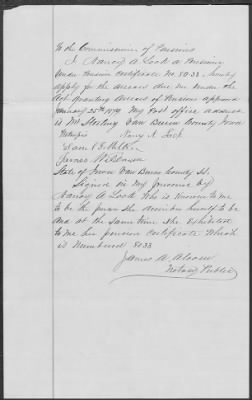 To the Commissioner of Pensions
I Nancy A. Lock a Pensioner
under Pension Certificate No. 8033, hereby
apply for the arrears due me under the
Act granting arrears of Pensions approved
January 25th 1879 My Post office address
is Mt Sterling Van Buren County Iowa
Nancy A. Lock
James
State of Iowa Van Buren County SS.
Signed in my presence by
Nancy A Lock who is known to me
to be the person she describes herself to be
and at the same time she exhibited
to me her pension certificate which
is Numbered 8033
James A.
Notary Public